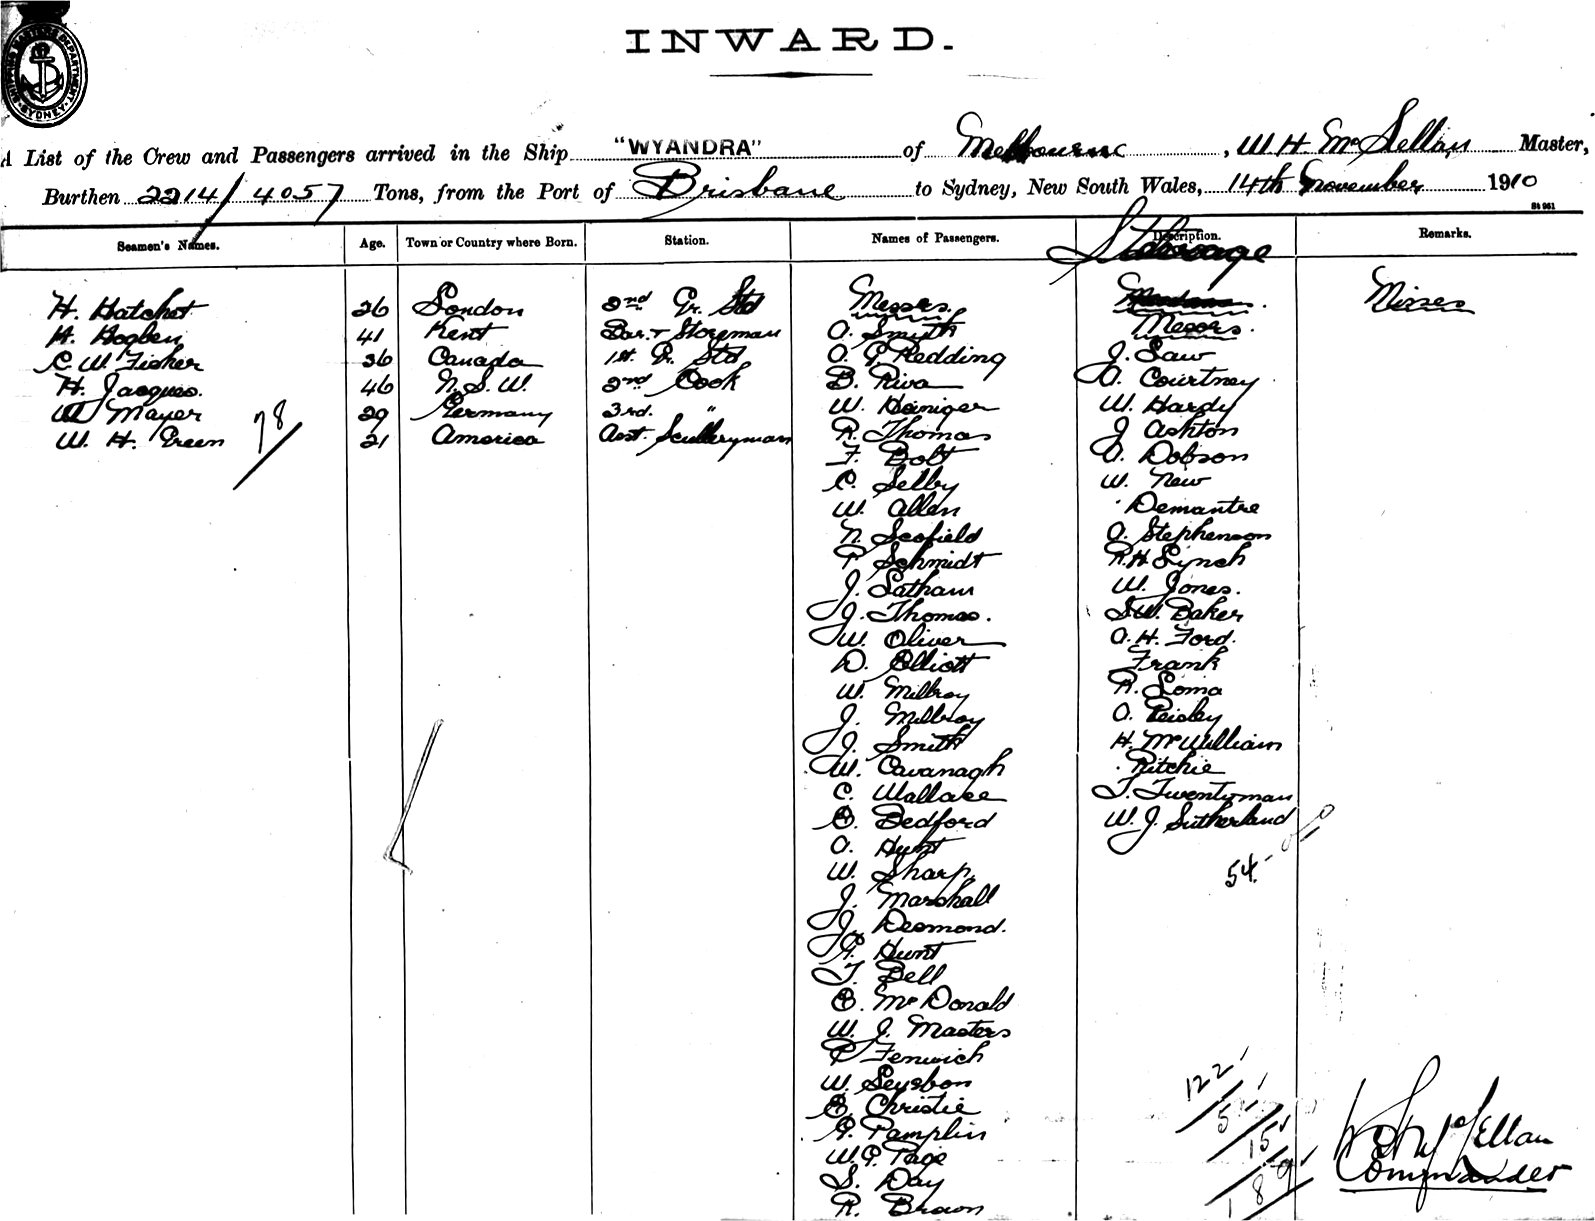 SHIPPING MASTER'S DEPARTMENT. SYDNEY
INWARD.
A List of the Crew and Passengers arrived in the Ship "WYANDRA" of Melbourne, W H McLellan Master,
Burthen 2214/4057 Tons, from the Port of Brisbane to Sydney, New South Wales, 14th November 1910
St 961
Seamen's Names. Age. Town or Country where Born. Station. Names of Passengers. Description. Remarks.
Steerage
H. Hatchet 26 London 2nd Gr. Std
H. Hogben 41 Kent Bar. & Storeman
C. W. Fisher 36 Canada 1st. G. Std
H. Jacques. 46 N. S. W. 2nd Cook
W Mayer 29 Germany 3rd. "
W. H. Green 21 America Asst. Sculleryman
78
Messrs.
O. Smyth
O. G. Redding
B. Riva
W. Heiniger
R. Thomas
F. Bolt
C. Selby
W. Allen
N. Scofield
P. Schmidt
J. Latham
J. Thomas.
W. Oliver
D. Elliott
W. Millroy
J. Millroy
J. Smith
W. Cavanagh
C. Wallace
E. Bedford
A. Hunt
W. Sharp.
J. Marshall
J. Desmond.
G. Hunt
T. Bell
E. McDonald
W. J. Masters
P. Fenwich
W. Leysbon
E. Christie
G. Pamplin
W. G. Page
S. Day
R. Brown
Messrs.
J. Law
A. Courtney
W. Hardy
J Ashton
A. Dobson
W. New
Demantre
A. Stephenson
R. H Lynch
W. Jones.
S. W. Baker
A. H. Ford.
Frank
R. Loma
A. Peisley
H. McWilliam
Ritchie
T. Twentyman
W. J. Sutherland
54.
Misses
122
5
15
189
W H McLellan
Commander